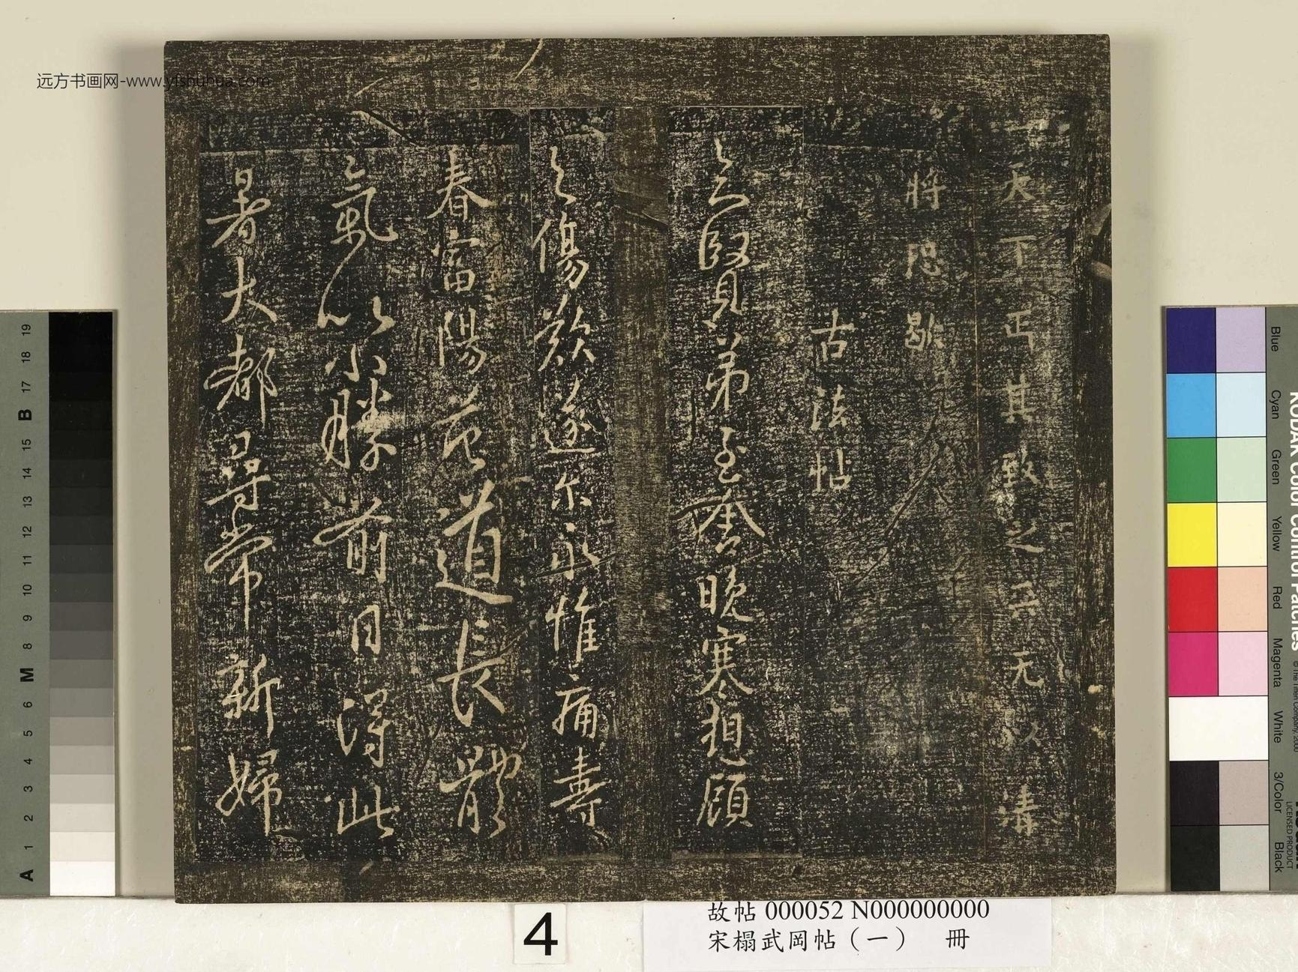 远方书画网-www.yfshuhua.com
天下正其致之一也天无以清
將恐歇
古法帖
賢弟至奎晚寒想顧
傷欲遂尔永惟痛壽
春富陽花道長體
氣以小勝前日得此
暑大都尋常新婦
4
故帖 000052 N000000000
宋榻武岡帖（一） 冊
KODAK Color Control Patches
Blue
Cyan
Green
Yellow
Red
Magenta
White
3/Color
Black
LICENSED PRODUCT
A 1 2 3 4 5 6 M 8 9 10 11 12 13 14 15 B 17 18 19